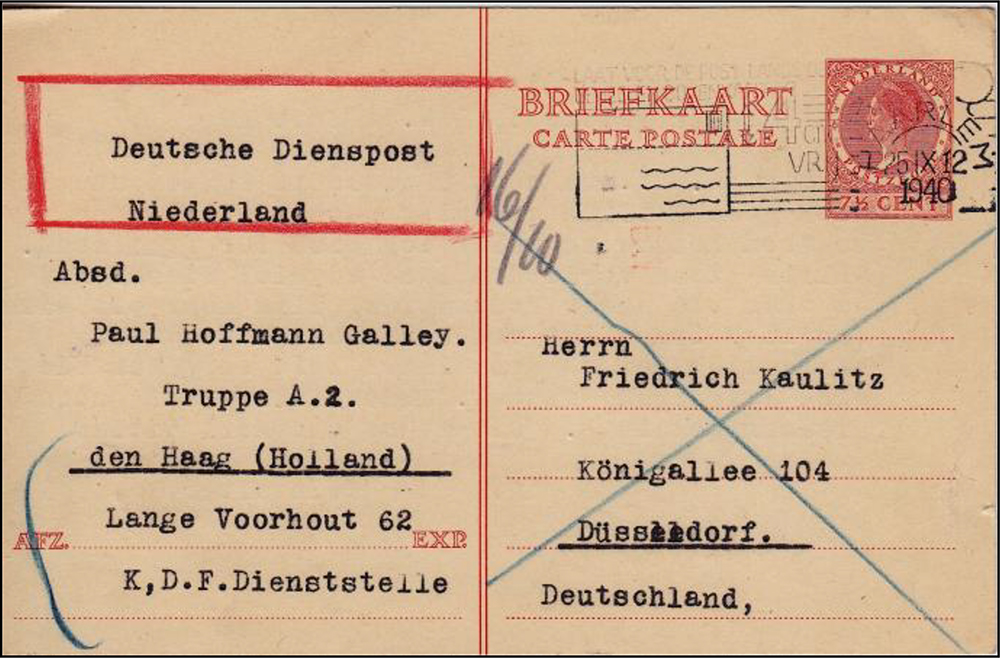 Deutsche Dienspost
Niederland
Absd.
Paul Hoffmann Galley.
Truppe A.2.
den Haag (Holland)
Lange Voorhout 62
AFZ. EXP.
K,D.F.Dienststelle
16/10
BRIEFKAART
CARTE POSTALE
NEDERLAND
POSTZEGEL
7½ CENT
VR 25 IX 12
1940
Herrn
Friedrich Kaulitz
Königallee 104
Düsseldorf.
Deutschland,